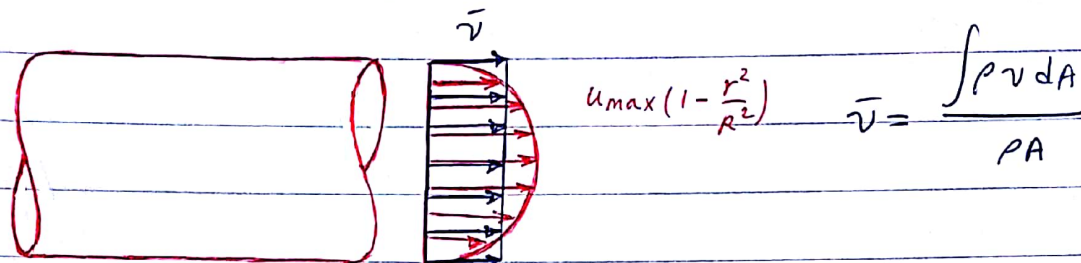 v̄
u_max(1 - r²/R²)
v̄ = ∫ρ v dA / ρA